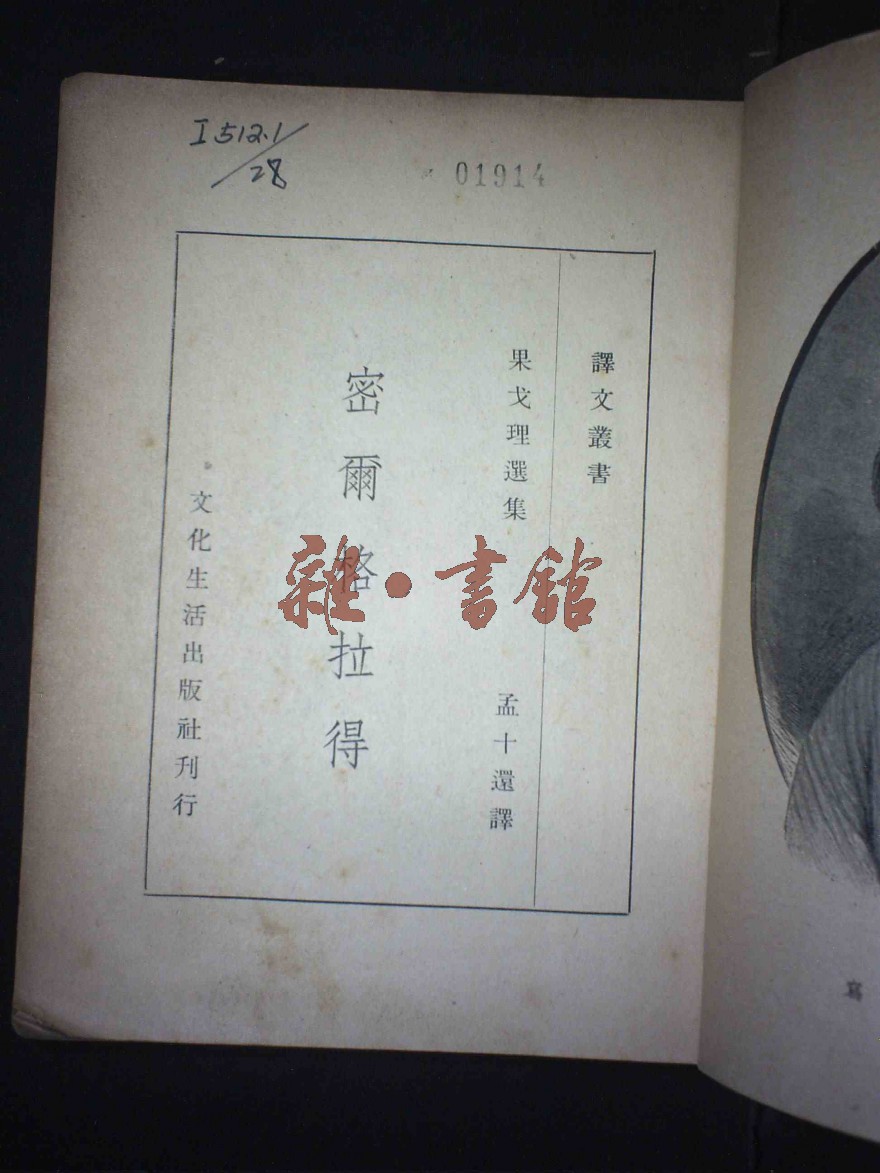 I512.1/28
01914
譯文叢書
果戈理選集
孟十還譯
密爾格拉得
文化生活出版社刊行
雜·書館
寫